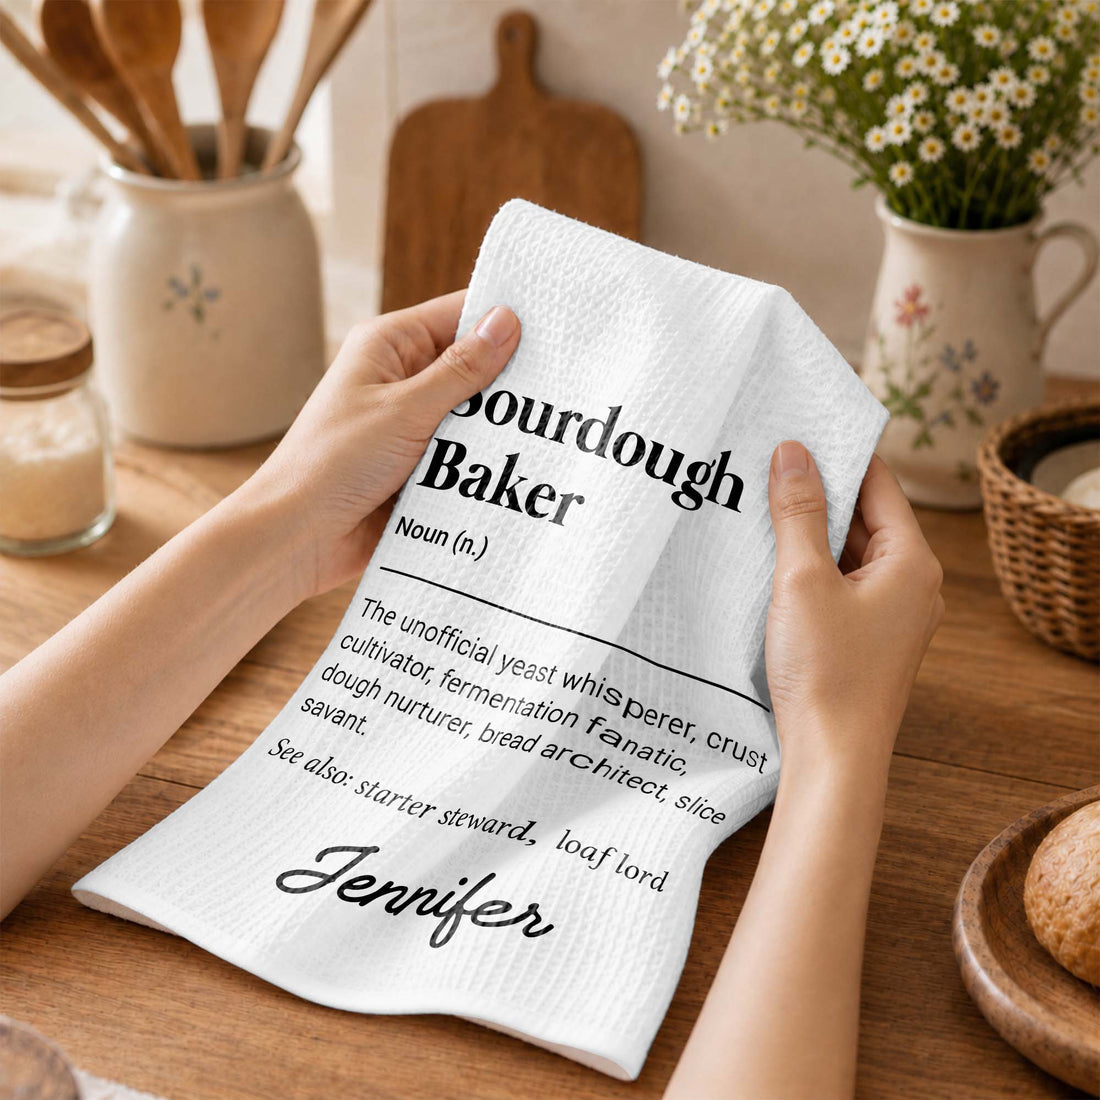 Sourdough
Baker
Noun (n.)
The unofficial yeast whisperer, crust
cultivator, fermentation fanatic,
dough nurturer, bread architect, slice
savant.
See also: starter steward, loaf lord
Jennifer